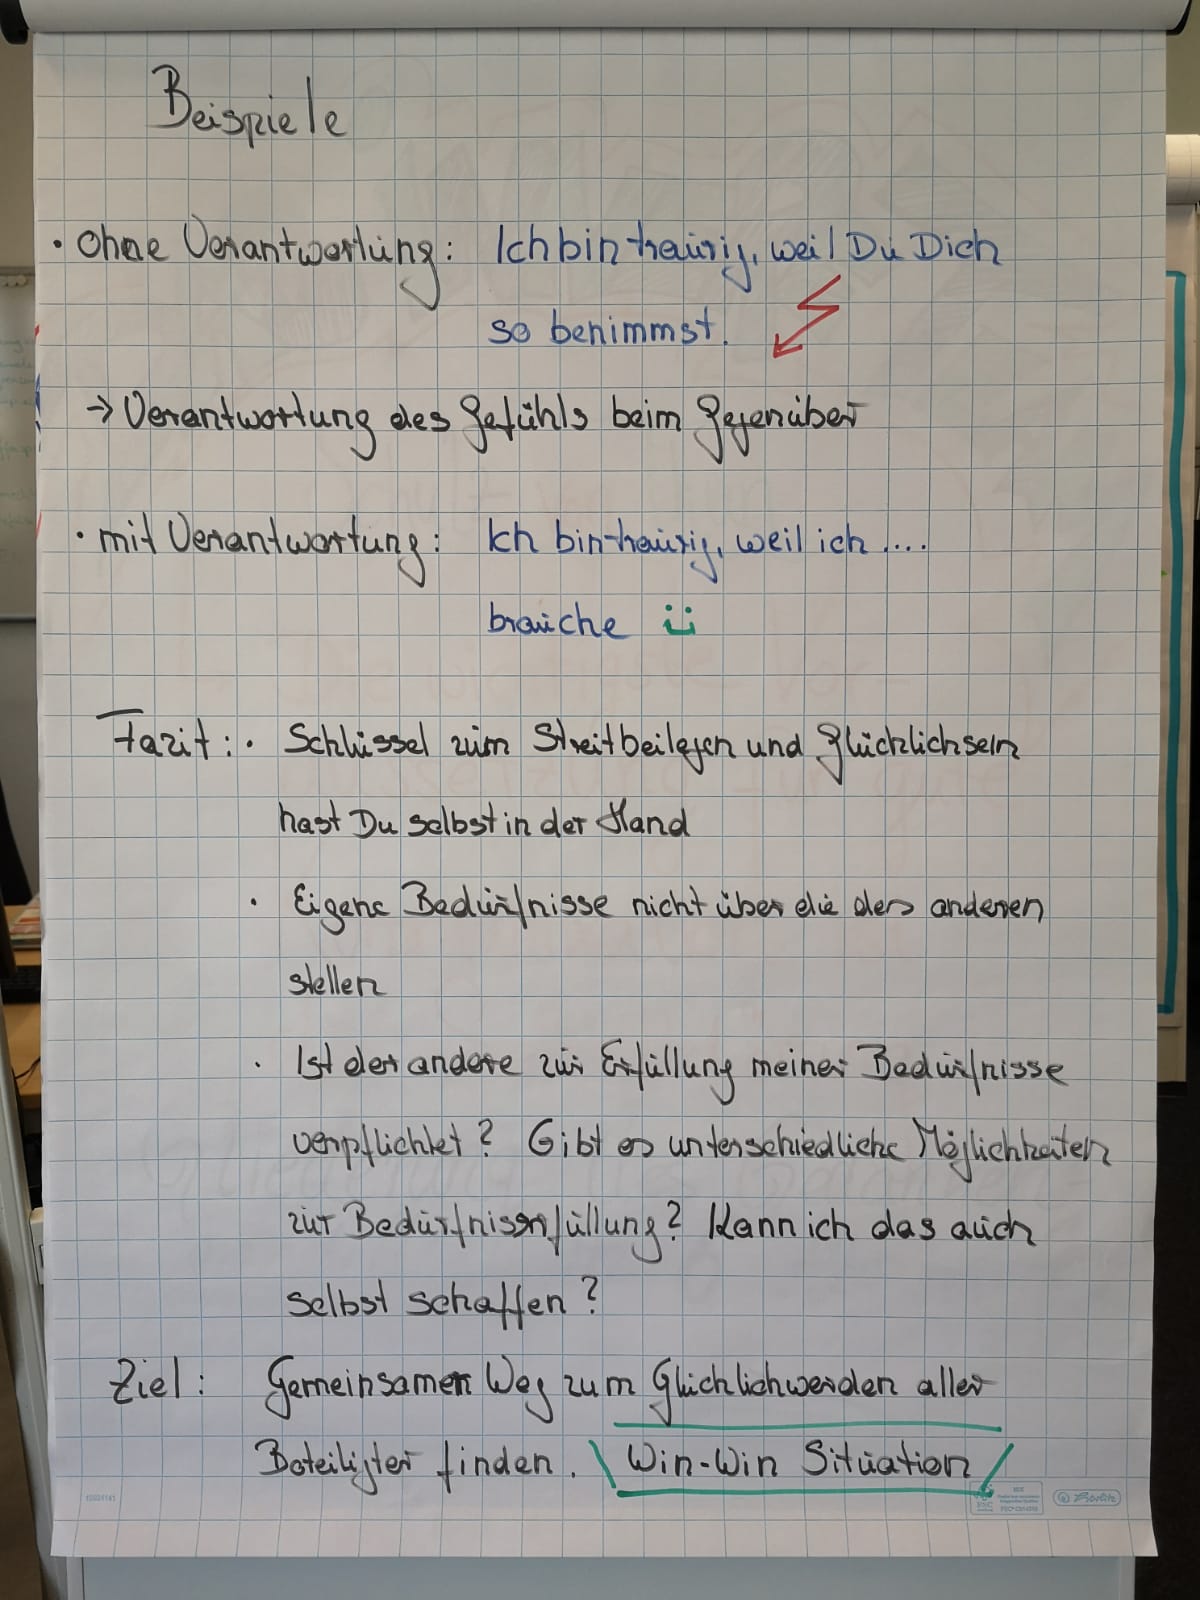 Beispiele
• ohne Verantwortung: Ich bin traurig, weil Du Dich
so benimmst.
→ Verantwortung des Gefühls beim Gegenüber
• mit Verantwortung: Ich bin traurig, weil ich ....
brauche
Fazit: • Schlüssel zum Streitbeilegen und Glücklichsein
hast Du selbst in der Hand
• Eigene Bedürfnisse nicht über die des anderen
stellen
• Ist der andere zur Erfüllung meiner Bedürfnisse
verpflichtet? Gibt es unterschiedliche Möglichkeiten
zur Bedürfnisserfüllung? Kann ich das auch
selbst schaffen?
Ziel: Gemeinsamen Weg zum Glücklichwerden aller
Beteiligter finden. \ Win-Win Situation /
FSC
Berlitz